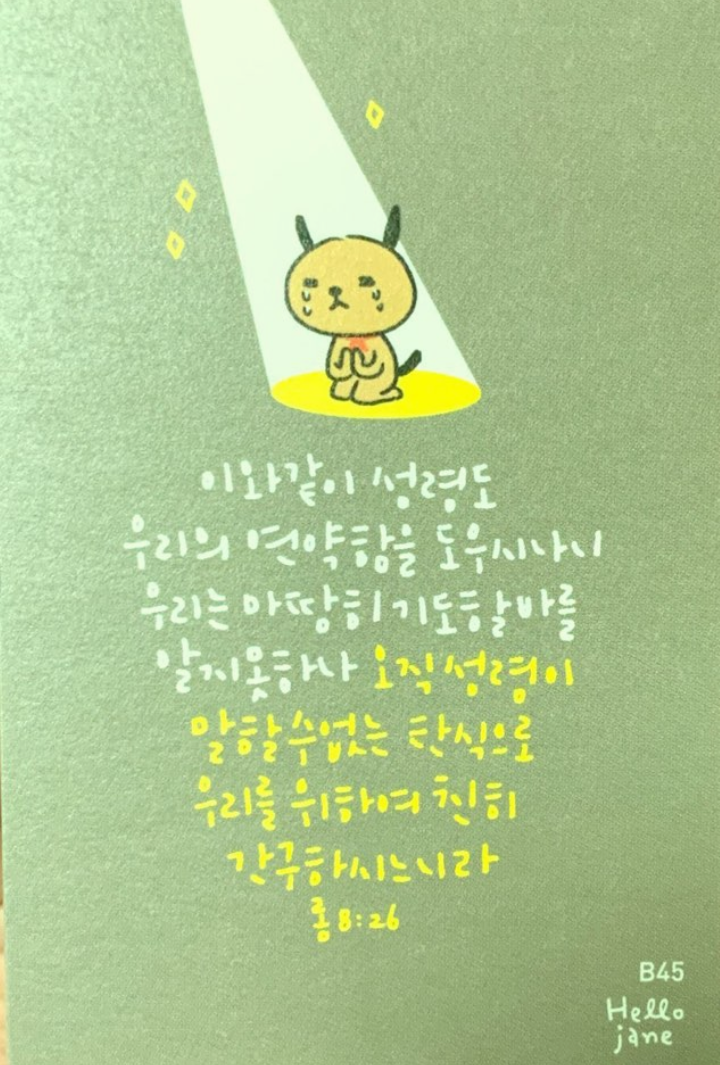 이와같이 성령도
우리의 연약함을 도우시나니
우리는 마땅히 기도할 바를
알지못하나 오직성령이
말할 수 없는 탄식으로
우리를 위하여 친히
간구하시느니라
롬 8:26
B45
Hello
jane